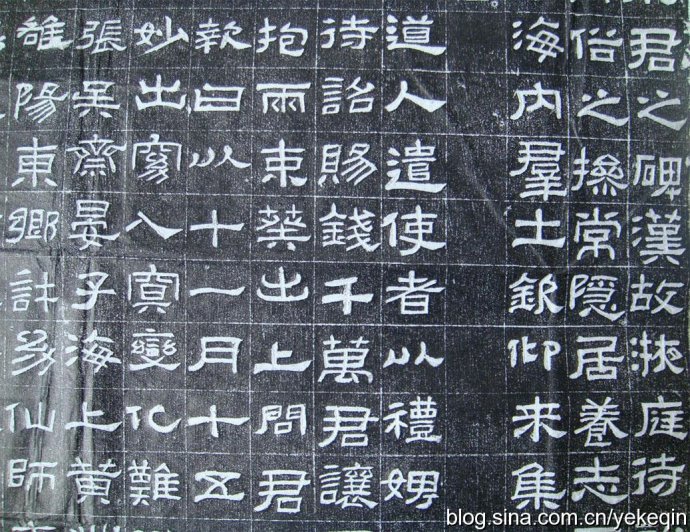 君之碑漢故掖庭待
俗之操常隱居養志
海内羣士欽仰来集
道人遣使者以禮娉
待詔賜錢千萬君讓
抱兩束葵出上問君
款曰以十一月十五
妙出窈入冥變化難
張吴齋晏子海上黄
雒陽東鄉許幼仙師
blog.sina.com.cn/yekeqin